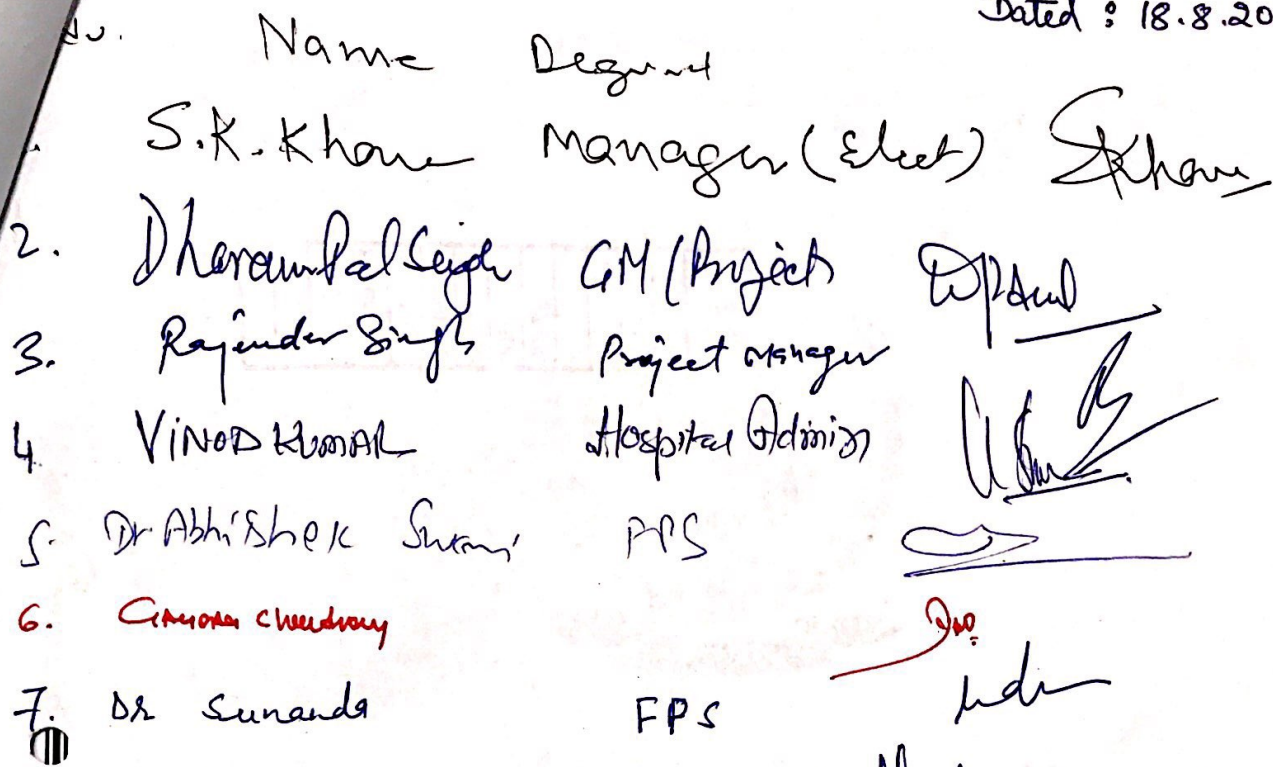 Dated : 18.8.20
Name
S.K. Khan Manager (Elect) SKhan
2. Dharam Pal Singh GM (Projects
3. Rajender Singh Project Manager
4 VINOD KUMAR Hospital Admin
5. Dr. Abhishek
6. Chaudhary
7. DR Sunanda FPS